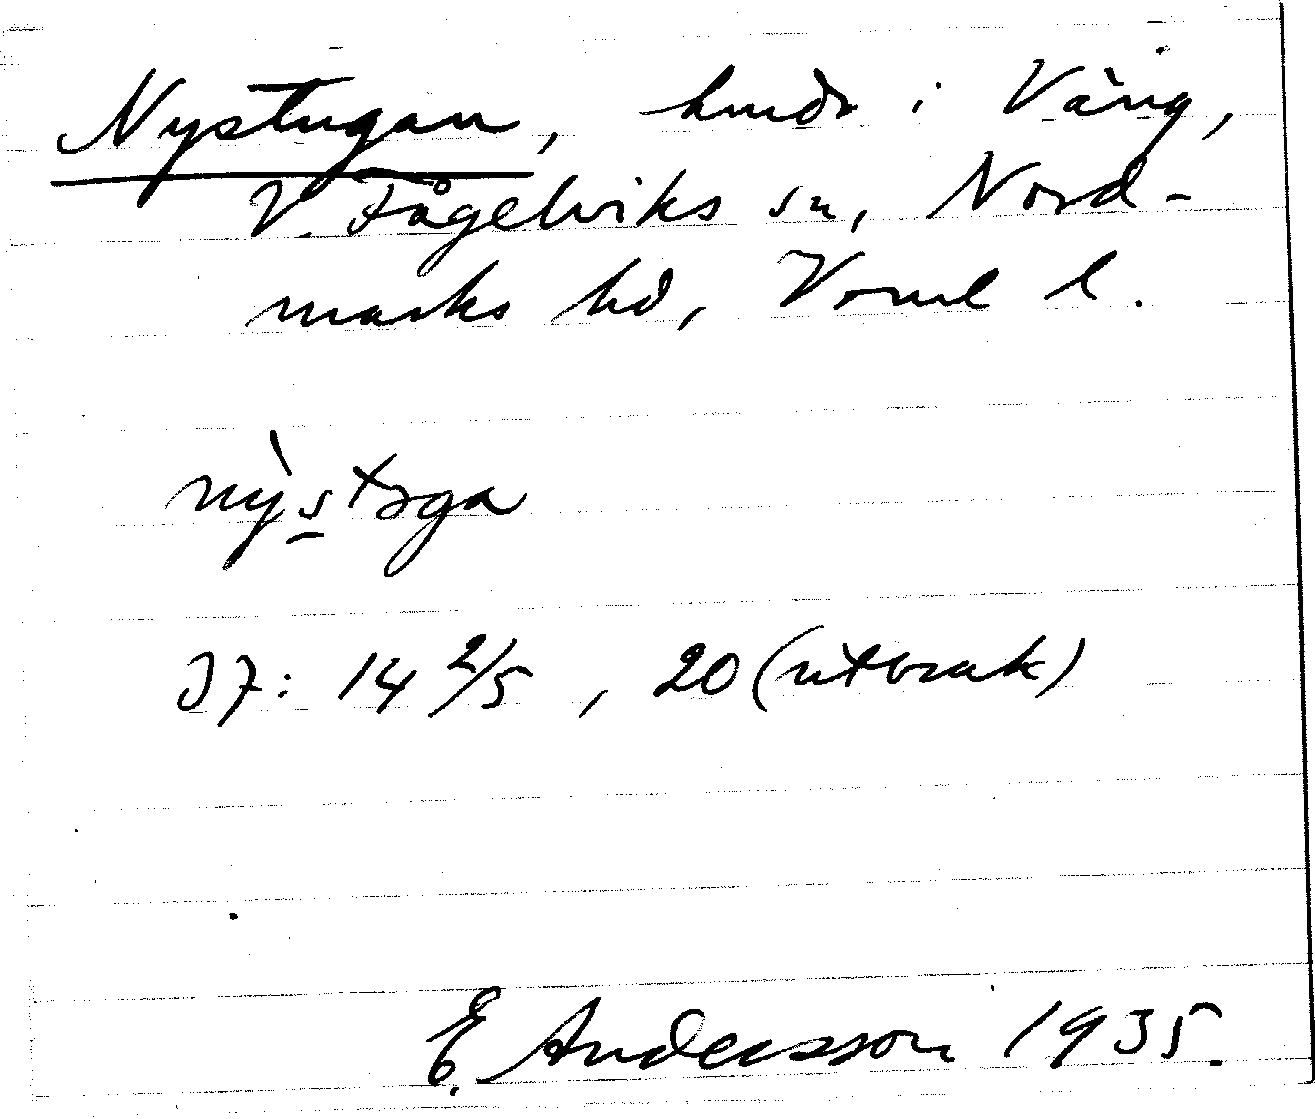 Nystugan, hmdr i Väng,
V. Fågelviks sn, Nord-
marks hd, Vrml l.
nỳstɔga
J7: 14 2/5, 20 (utbruk)
E. Andersson 1935.